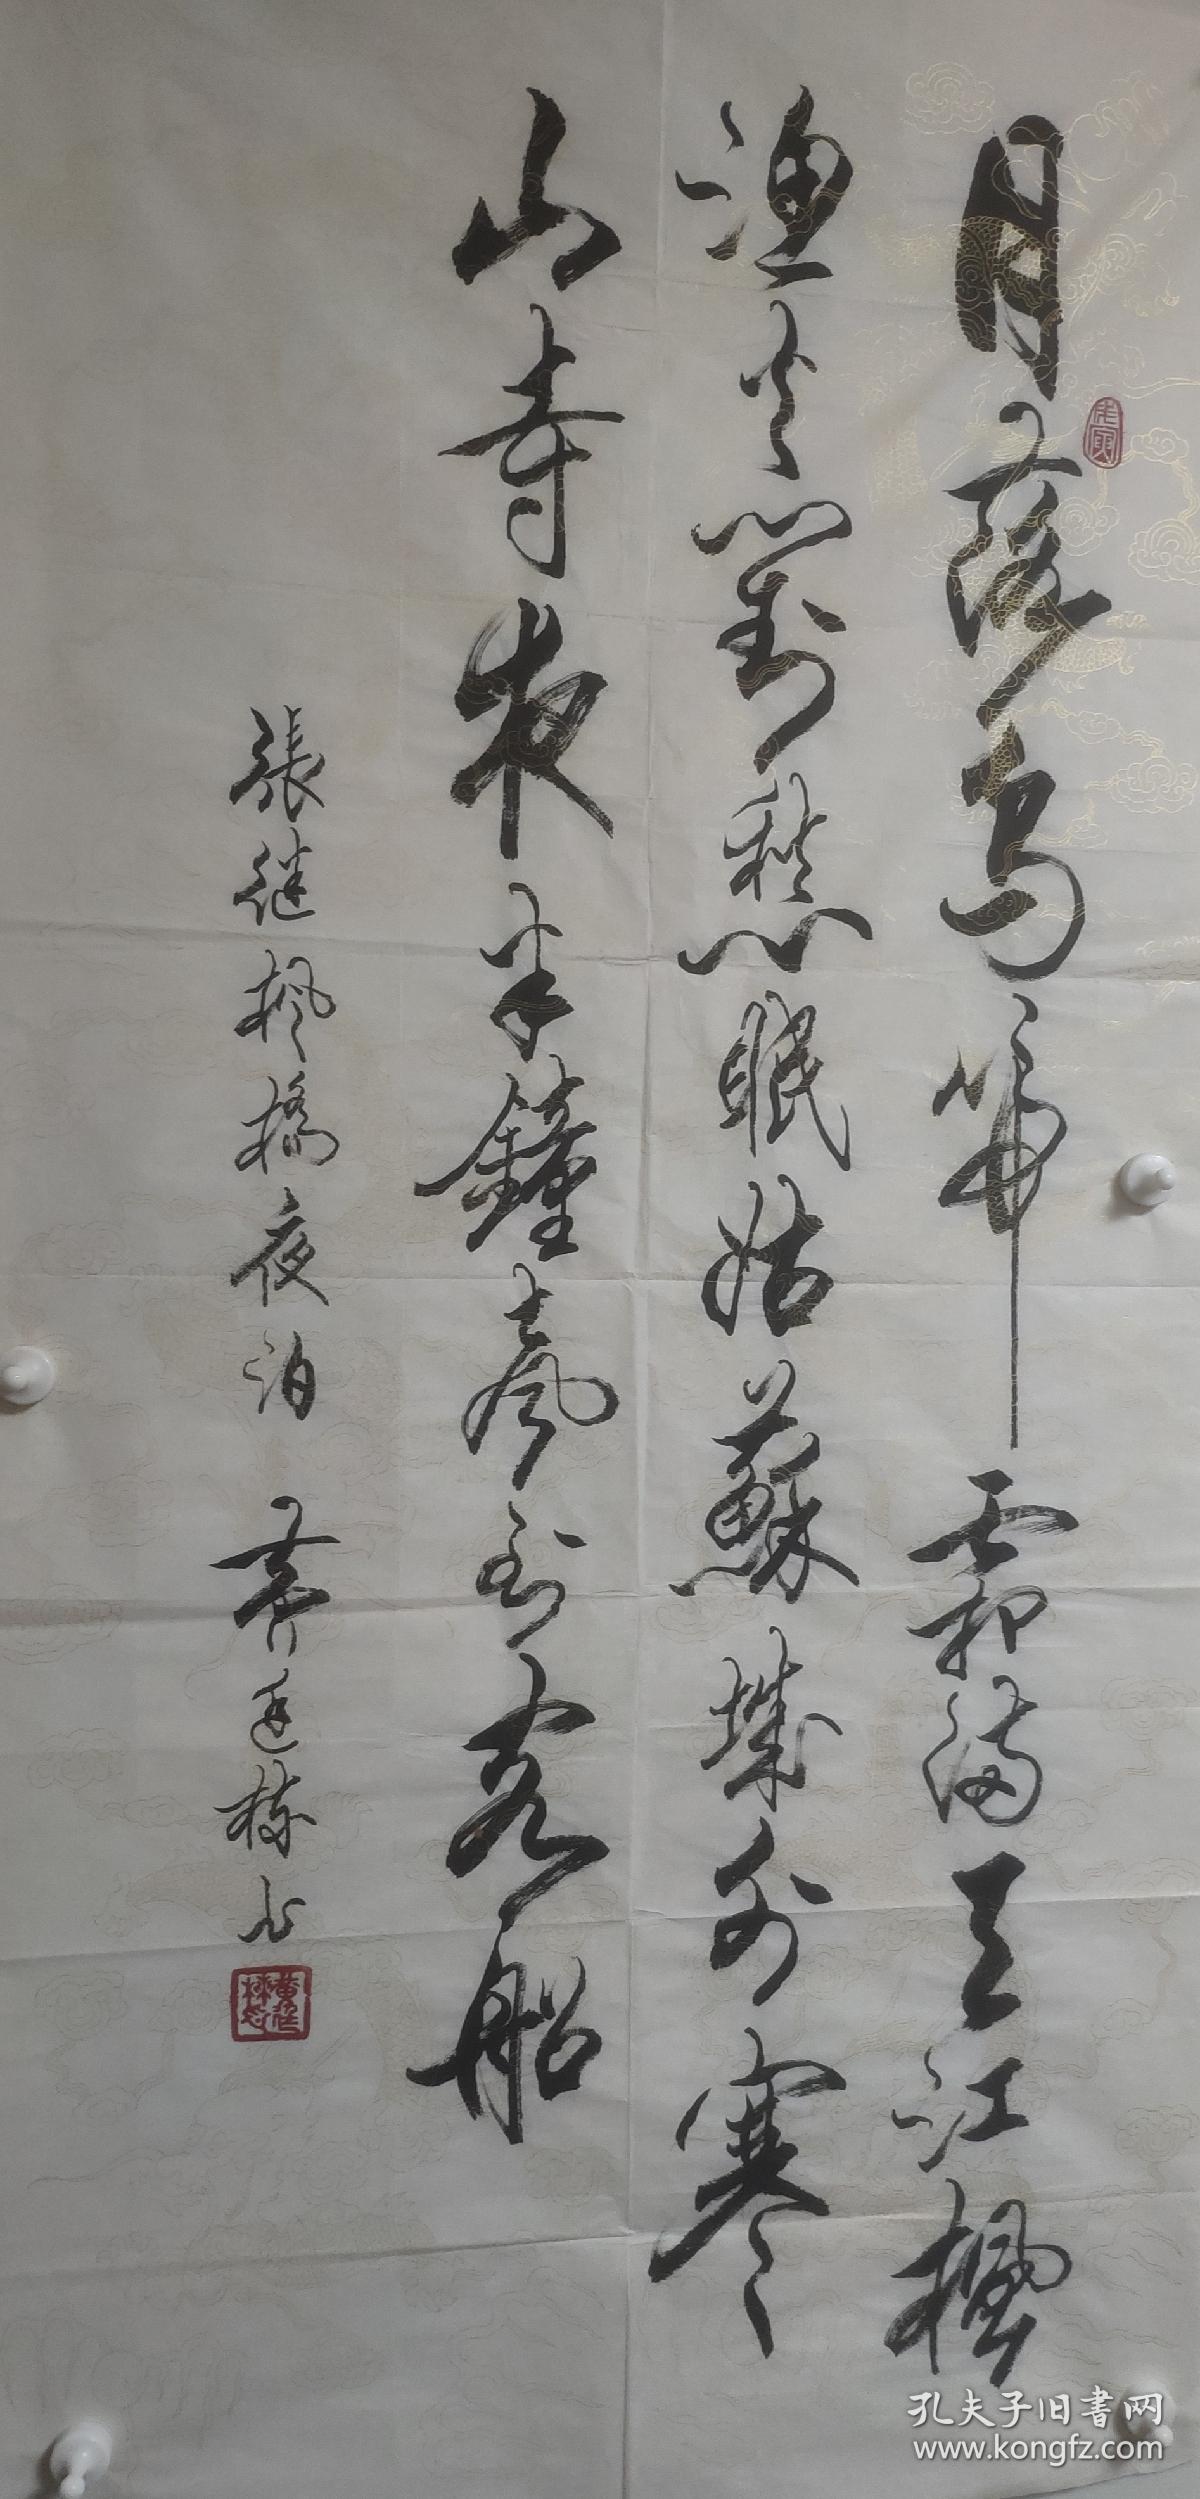 月落烏啼霜满天江楓
漁火對愁眠姑蘇城外寒
山寺夜半鐘聲到客船
張继楓橋夜泊 黄廷栋书
庚寅
孔夫子旧书网
www.kongfz.com